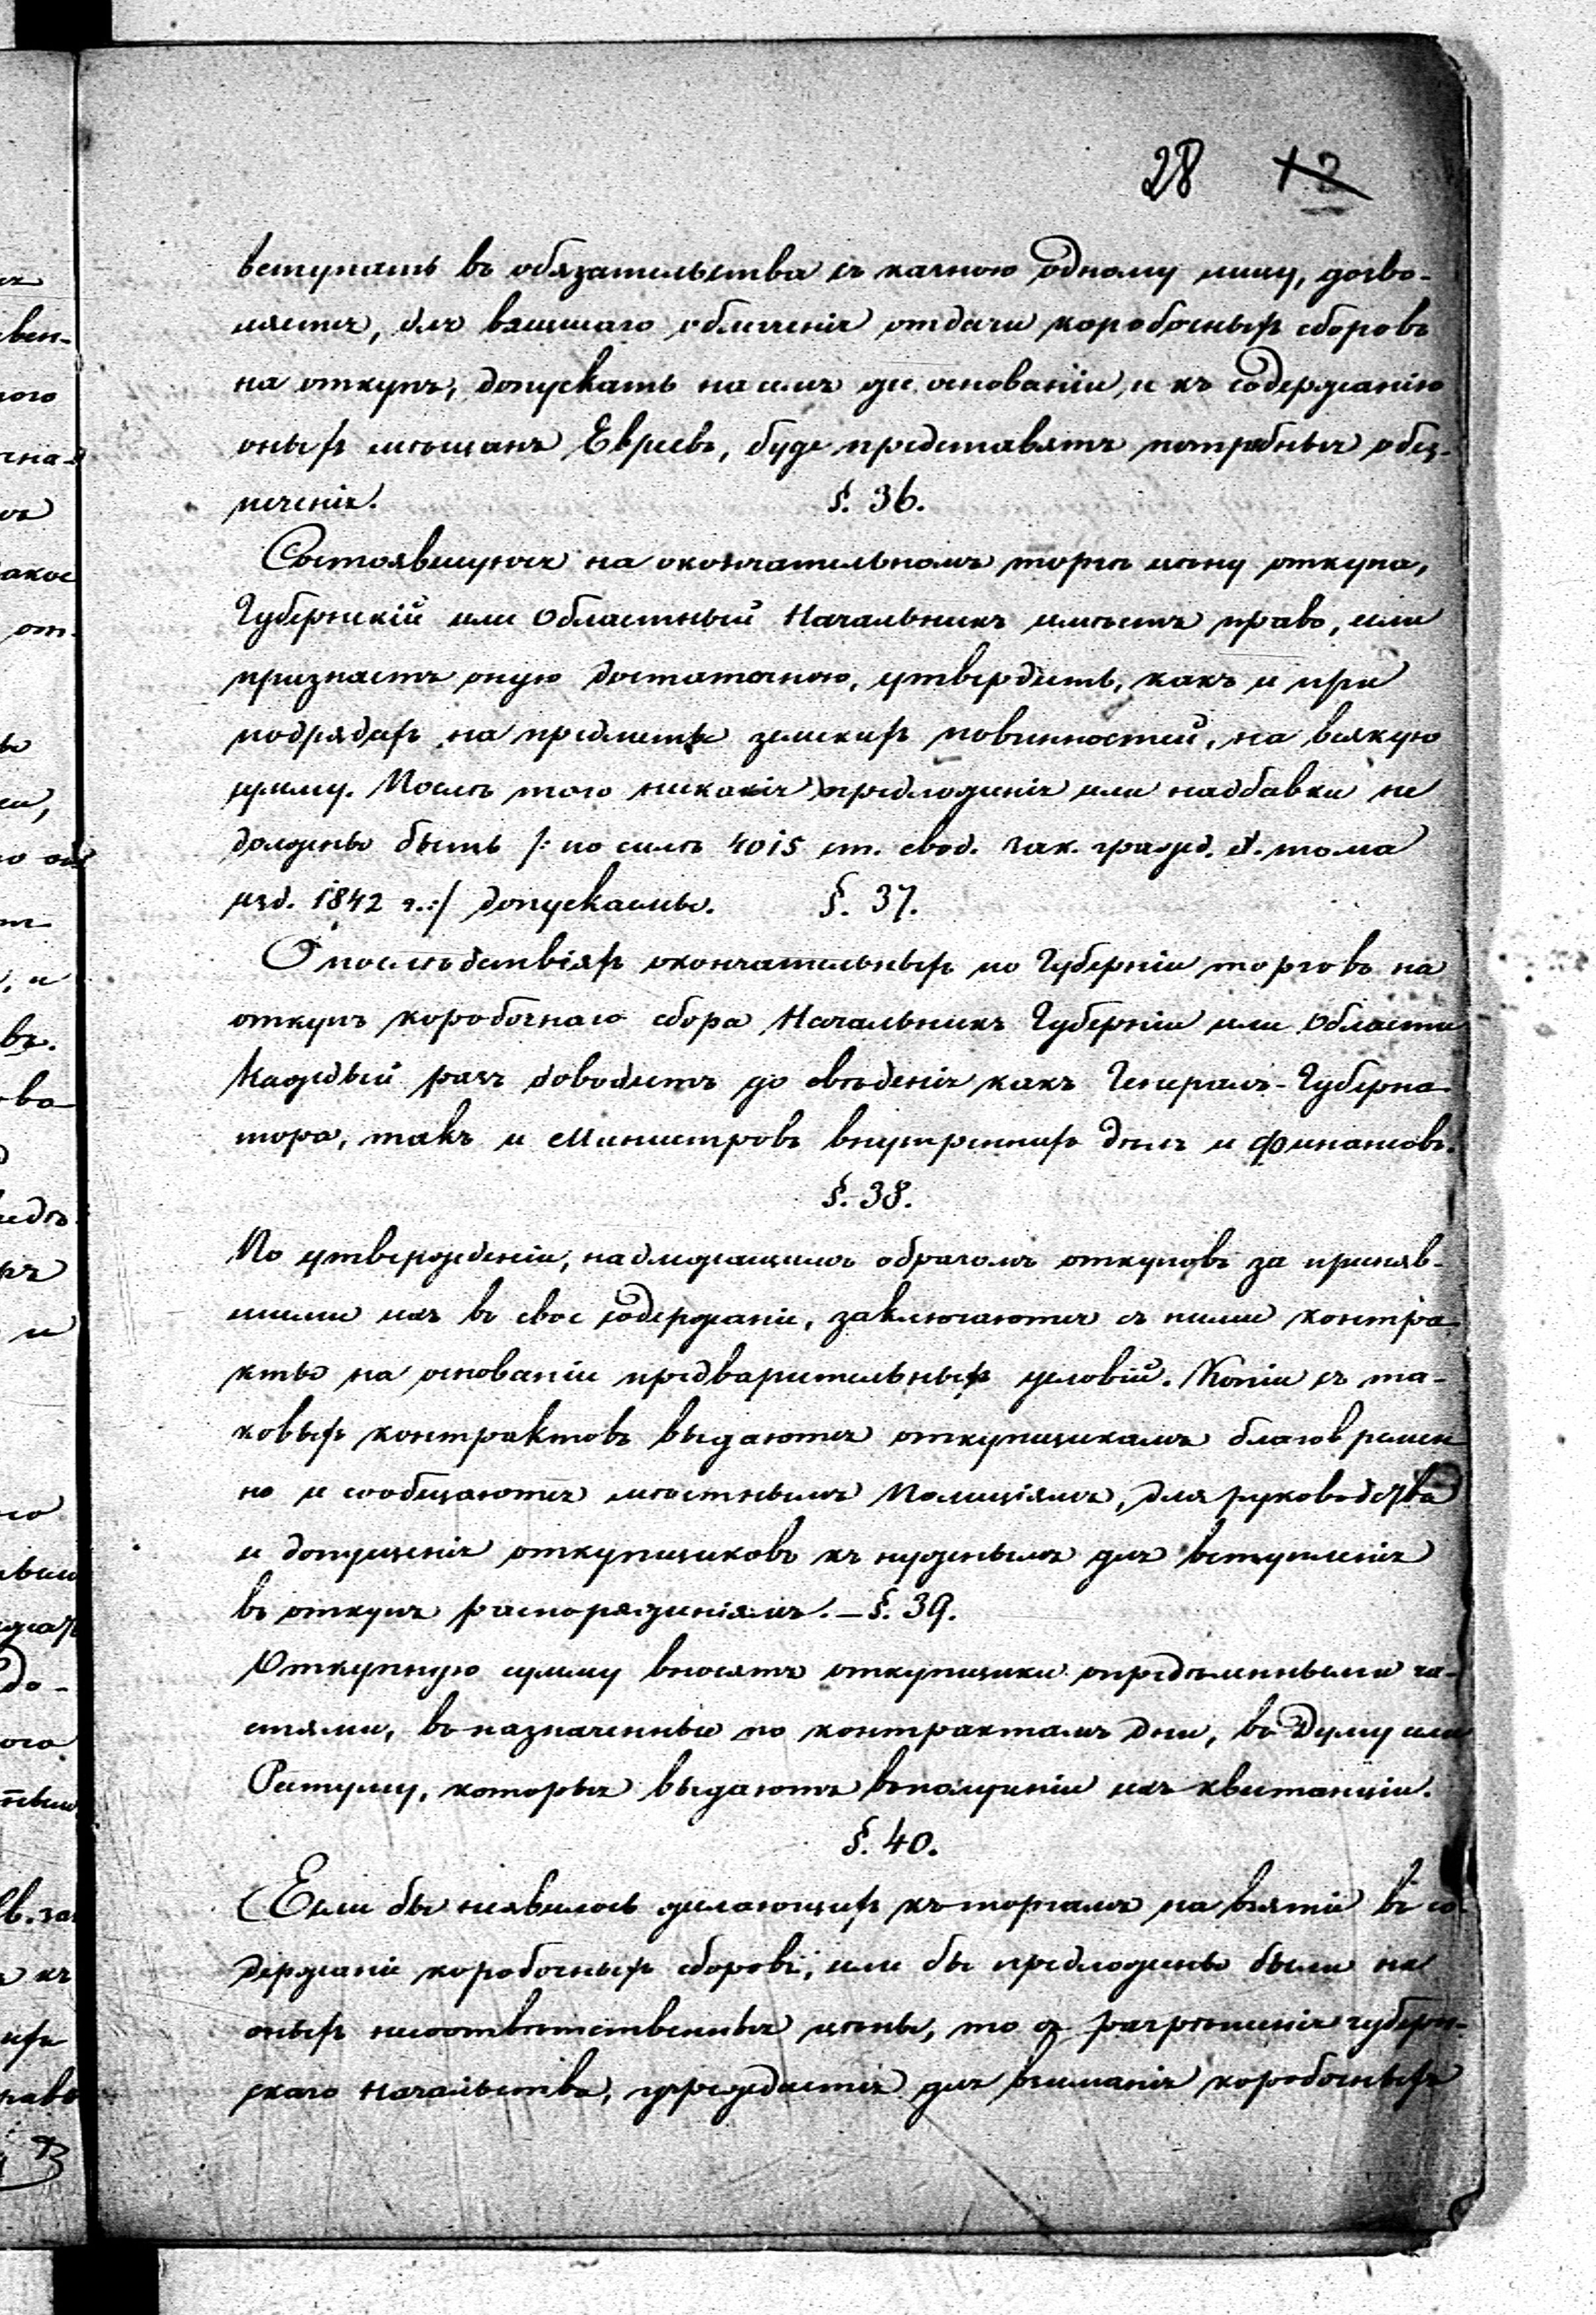 28 12
вступать въ обязательства съ казною одному лицу, дозво-
ляется, для вящшаго облегченія отдачи коробочныхъ сборовъ
на откупъ, допускать на семъ же основаніи, и къ содержанію
оныхъ мѣщанъ Евреевъ, буде представятъ потребныя обез-
печенія. §. 36.
Состоявшуюся на окончательномъ торгѣ цѣну откупа,
Губернскій или Областный Начальникъ имѣетъ право, если
признаетъ оную достаточною, утвердить, какъ и при
подрядахъ на предметы земскихъ повинностей, на всякую
сумму. Послѣ того никакія предложенія или наддавки не
должны быть /: по силѣ 4015 ст. свод. зак. гражд. X. тома
изд. 1842 г.:/ допускаемы. §. 37.
О послѣдствіяхъ окончательныхъ по Губерніи торговъ на
откупъ коробочнаго сбора Начальникъ Губерніи или Области
каждый разъ доводитъ до свѣденія какъ Генералъ-Губерна-
тора, такъ и Министровъ внутреннихъ дѣлъ и финансовъ.
§. 38.
По утвержденіи, надлежащимъ образомъ откуповъ за приняв-
шими ихъ въ свое содержаніе, заключаются съ ними контра-
кты на основаніи предварительныхъ условій. Копіи съ та-
ковыхъ контрактовъ выдаются откупщикамъ благовремен
но и сообщаются мѣстнымъ Полиціямъ, для руководства
и допущенія откупщиковъ къ нужнымъ для вступленія
въ откупъ распоряженіямъ. — §. 39.
Откупную сумму вносятъ откупщики опредѣленными ча-
стями, въ назначенные по контрактамъ дни, въ Думу или
Ратушу, которыя выдаютъ въ полученіи ихъ квитанціи.
§. 40.
Если бы неявилось желающихъ къ торгамъ на взятіе въ со-
держаніе коробочныхъ сборовъ, или бы предложены были на
оныхъ несоотвѣтственныя цѣны, то съ разрѣшенія губерн-
скаго начальства, учреждается для взиманія коробочныхъ